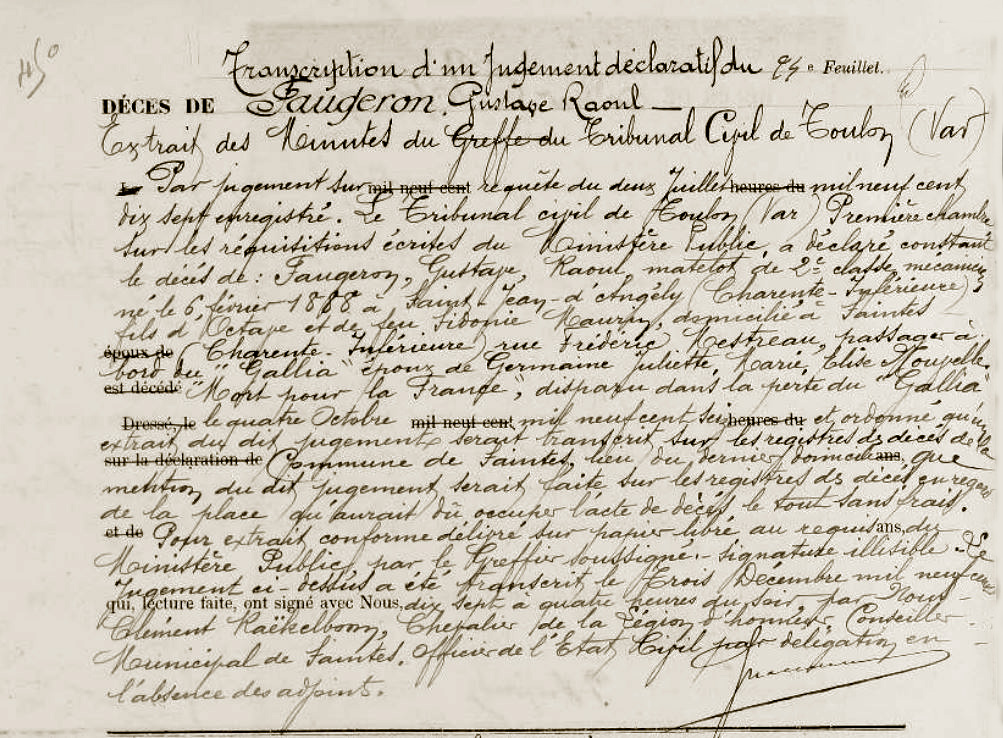 450
Transcription d'un Jugement déclaratif du e Feuillet.
DÉCES DE Faugeron, Gustave Raoul —
Extrait des Minutes du Greffe du Tribunal Civil de Toulon (Var)
Par jugement sur mil neuf cent requête du deux Juillet heures du mil neuf cent
dix sept enregistré. Le Tribunal civil de Toulon (Var) Première chambre
sur les réquisitions écrites du Ministère Public, a déclaré constant
le décés de : Faugeron, Gustave, Raoul, matelot de 2e classe mécanicien,
né le 6, février 1888 à Saint-Jean-d'Angély (Charente-Inférieure)
fils d'Octave et de feu Sidonie Maurin, domicilié à Saintes
époux de (Charente-Inférieure) rue Frédéric Mestreau, passager à
bord du "Gallia" époux de Germaine Juliette, Marie, Elise Nouvelle.
est décédé "Mort pour la France", disparu dans la perte du "Gallia"
Dressé, le le quatre Octobre mil neuf cent, mil neuf cent seize heures du et ordonné qu'un
extrait du dit jugement serait transcrit sur les registres ds décés de la
sur la déclaration de Commune de Saintes, lieu du dernier domicile ans, que
mention du dit jugement serait faite sur les registres ds décés en regard
de la place qu'aurait dû occuper l'acte de décés, le tout sans frais.
et de Pour extrait conforme délivré sur papier libre au requis ans, du
Ministère Public, par le Greffier soussigné.- signature illisible. Le
Jugement ci-dessus a été transcrit le Trois Décembre mil neuf cent
qui, lecture faite, ont signé avec Nous, dix sept à quatre heures du soir, par Nous
Clément Kaëkelboom, Chevalier de la Légion d'honneur, Conseiller
Municipal de Saintes, Officier de l'Etat Civil par délégation en
l'absence des adjoints.